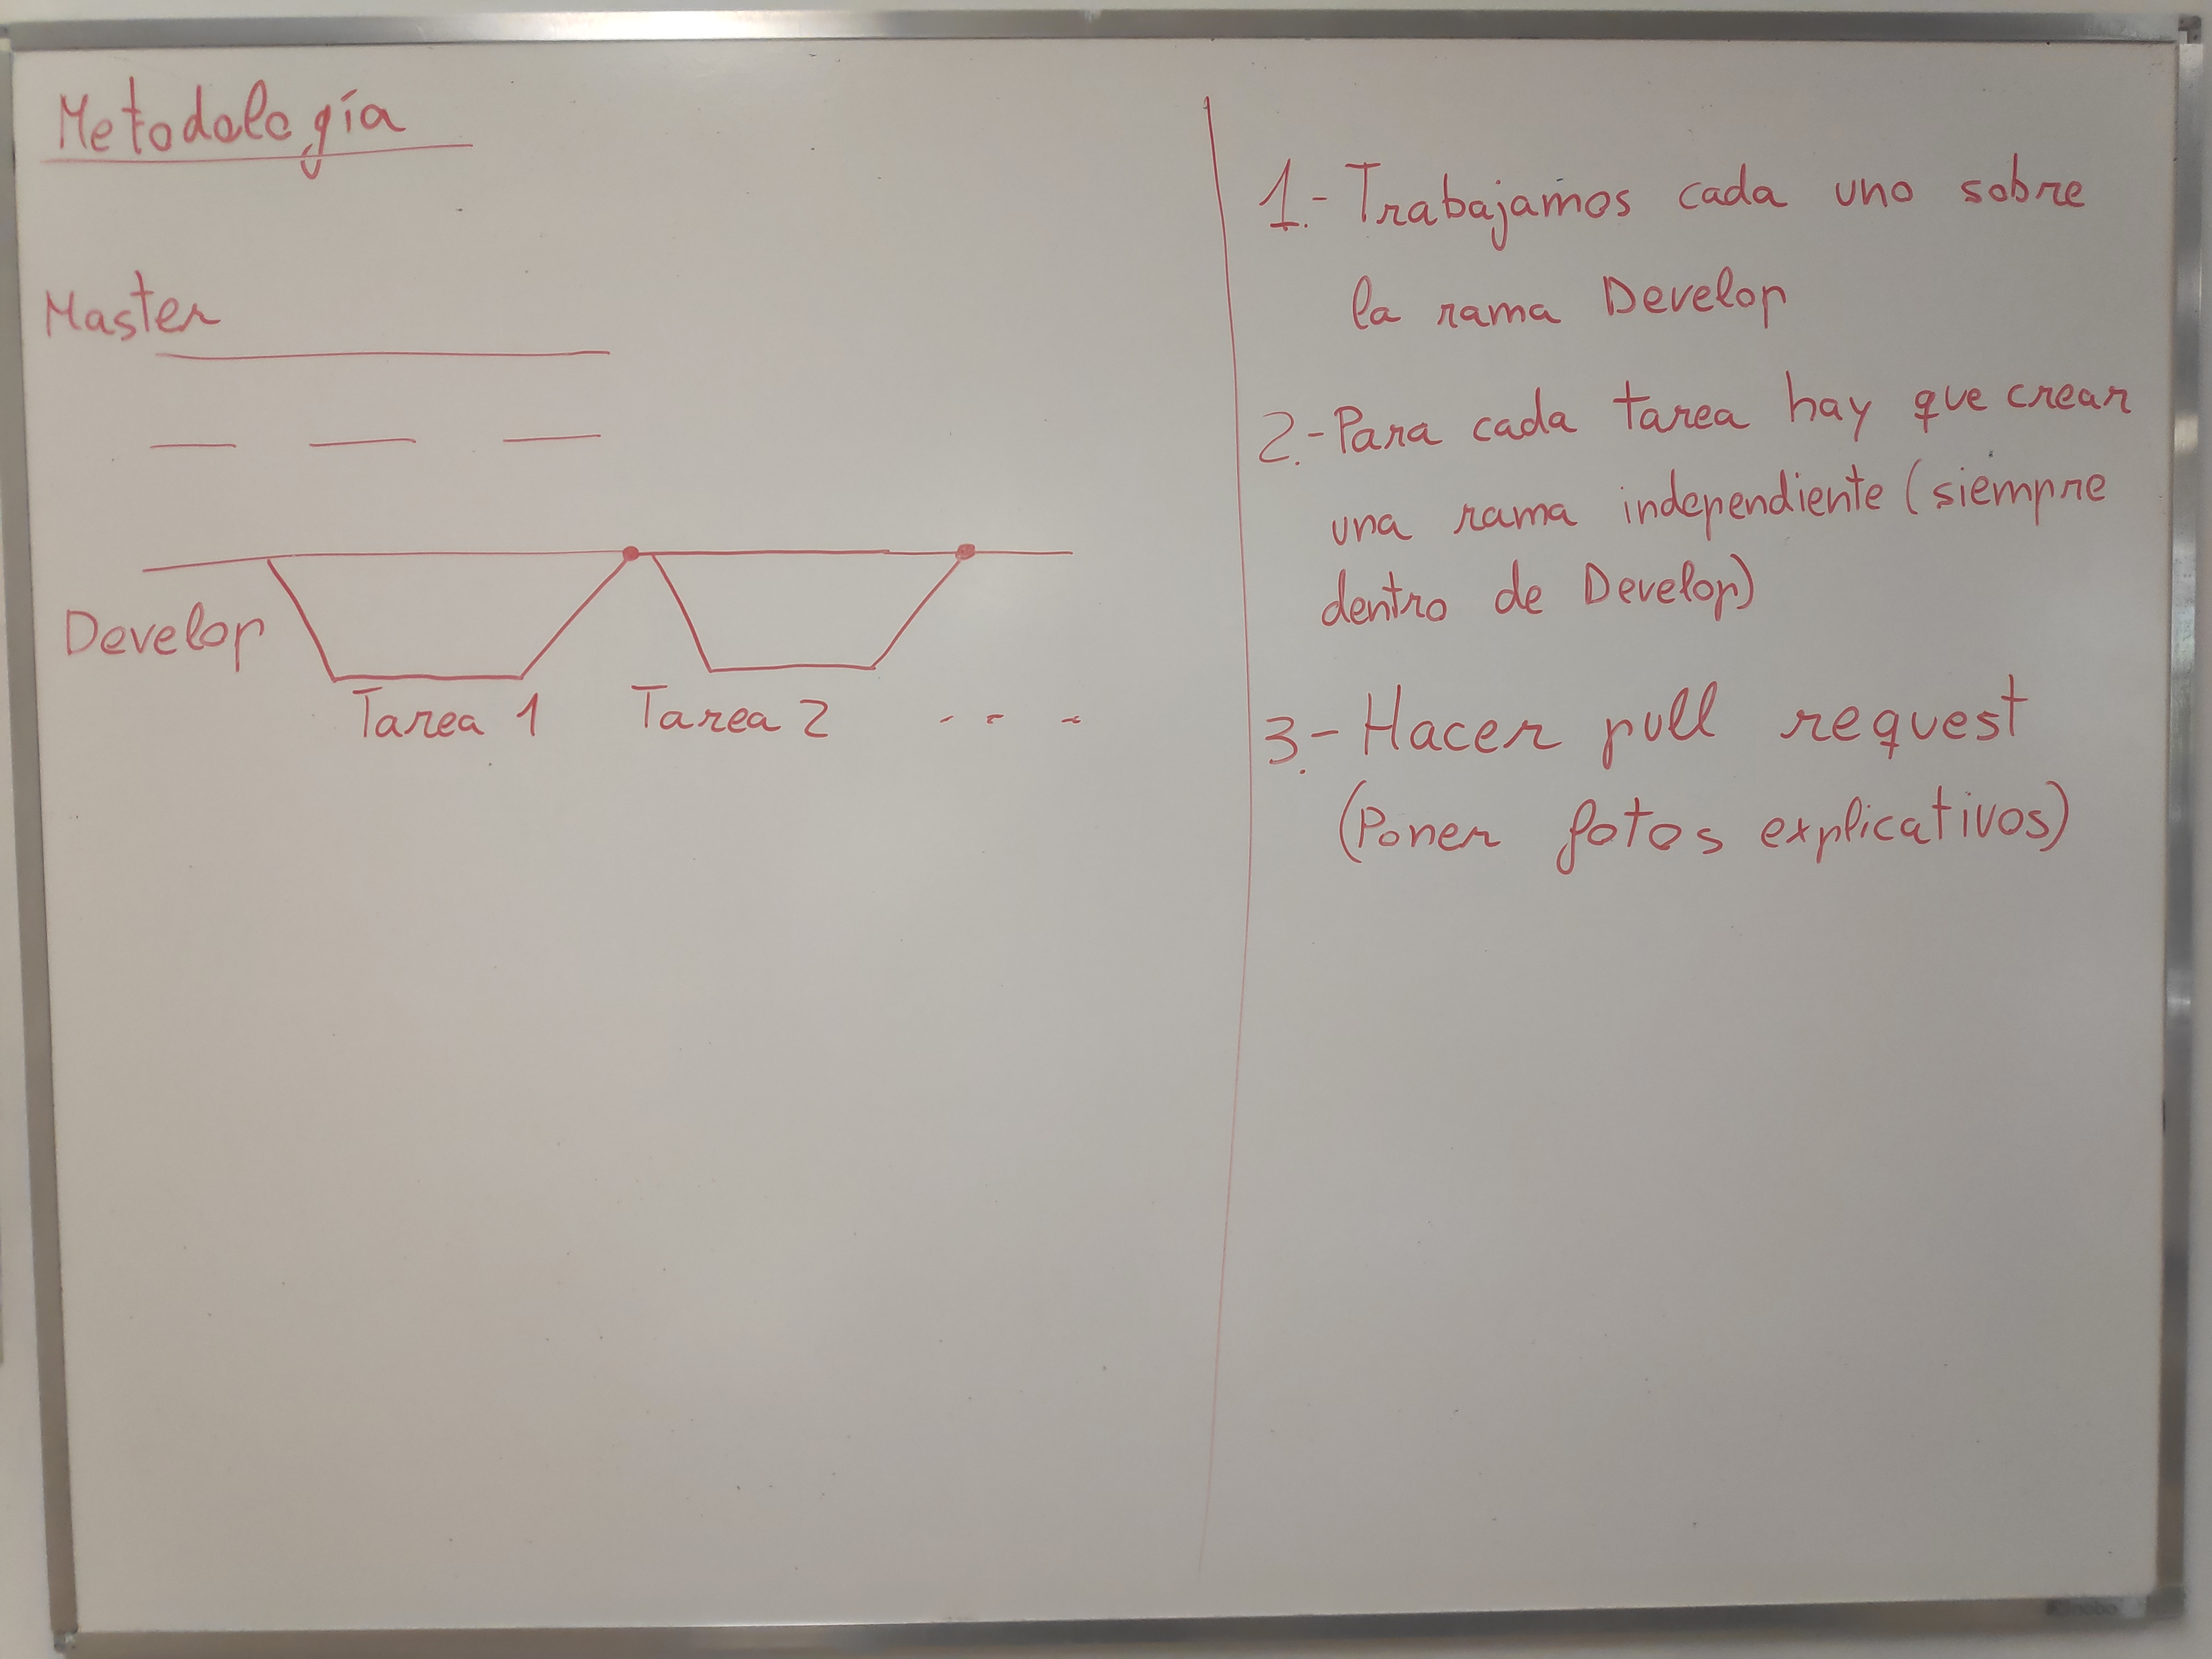 Metodología
Master
Develop
Tarea 1 Tarea 2 - - -
1.- Trabajamos cada uno sobre
la rama Develop
2.- Para cada tarea hay que crear
una rama independiente (siempre
dentro de Develop)
3.- Hacer pull request
(Poner fotos explicativos)